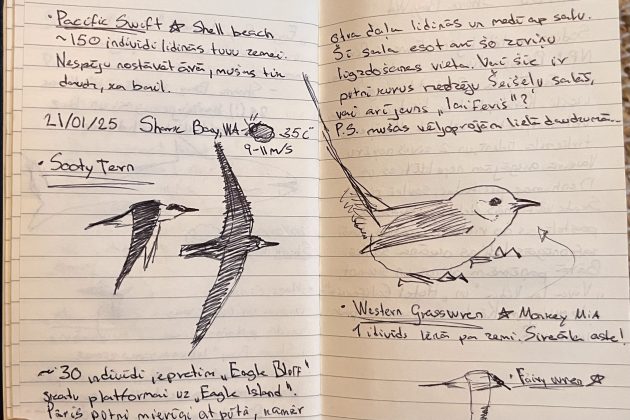 • Pacific Swift ☆ Shell beach
~150 indivīdi lidinās tuvu zemei.
Nespēju nostāvēt ārā, mušas tik
daudz, ka bail.
21/01/25 Shark Bay, WA 35 C
9-11 m/s
• Sooty Tern
~ 30 indivīdi, iepretim „Eagle Bluff"
skatu platformai uz „Eagle Island".
Pāris putni mierīgi atpūtā, kamēr
otra daļa lidinās un medī ap salu.
Šī sala esot arī šo
ligzdošanas vieta. Vai šie ir
putni kurus redzēju Šeišelu salās,
vai arī jauns „laiferis"?
P.S. mušas vēljoprojām lielā daudzumā...
• Western Grasswren ☆ Monkey Mia
1 idivīds lēkā pa zemi. Sireāla aste!
• Fairy wren ☆